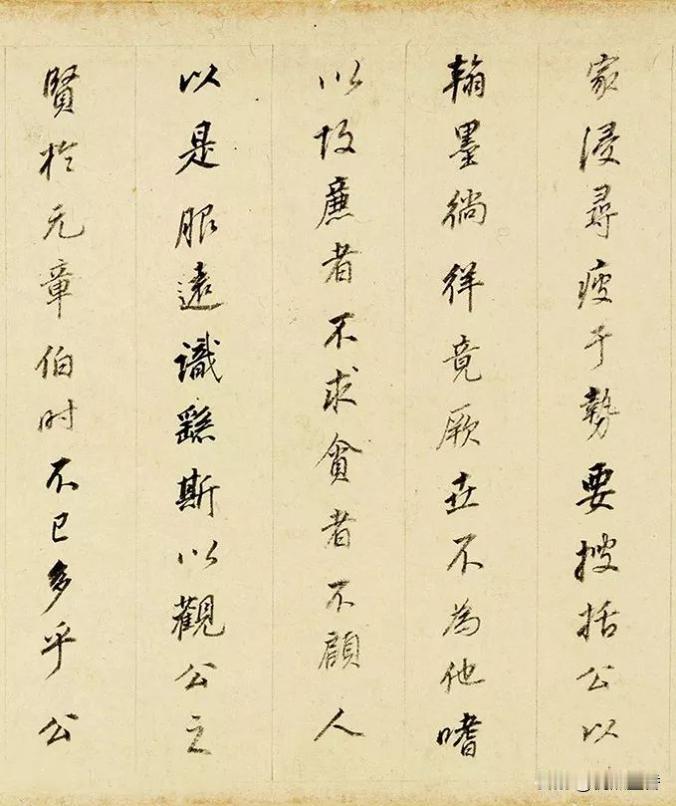 家浸尋疲于勢要搜括公以
翰墨徜徉竟厥世不為他嗜
以故廉者不求貪者不顧人
以是服遠識繇斯以觀公之
賢於元章伯时不已多乎公